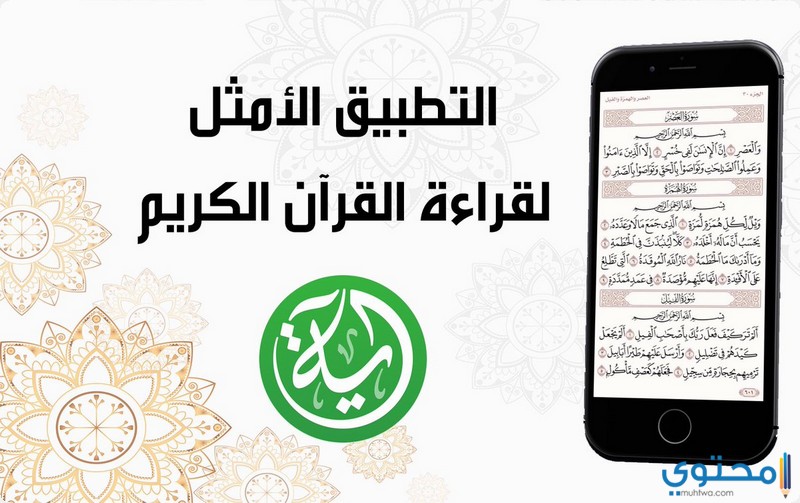 التطبيق الأمثل
لقراءة القرآن الكريم
آية
الجزء ٣٠
العصر والهمزة والفيل
سُورَةُ العَصْرِ
بِسْمِ اللَّهِ الرَّحْمَٰنِ الرَّحِيمِ
وَالْعَصْرِ ١ إِنَّ الْإِنسَانَ لَفِي خُسْرٍ ٢ إِلَّا الَّذِينَ ءَامَنُوا
وَعَمِلُوا الصَّالِحَاتِ وَتَوَاصَوْا بِالْحَقِّ وَتَوَاصَوْا بِالصَّبْرِ ٣
سُورَةُ الهُمَزَةِ
بِسْمِ اللَّهِ الرَّحْمَٰنِ الرَّحِيمِ
وَيْلٌ لِّكُلِّ هُمَزَةٍ لُّمَزَةٍ ١ الَّذِي جَمَعَ مَالًا وَعَدَّدَهُ ٢
يَحْسَبُ أَنَّ مَالَهُ أَخْلَدَهُ ٣ كَلَّا لَيُنبَذَنَّ فِي الْحُطَمَةِ ٤
وَمَا أَدْرَىٰكَ مَا الْحُطَمَةُ ٥ نَارُ اللَّهِ الْمُوقَدَةُ ٦ الَّتِي تَطَّلِعُ
عَلَى الْأَفْئِدَةِ ٧ إِنَّهَا عَلَيْهِم مُّؤْصَدَةٌ ٨ فِي عَمَدٍ مُّمَدَّدَةٍ ٩
سُورَةُ الفِيلِ
بِسْمِ اللَّهِ الرَّحْمَٰنِ الرَّحِيمِ
أَلَمْ تَرَ كَيْفَ فَعَلَ رَبُّكَ بِأَصْحَابِ الْفِيلِ ١ أَلَمْ يَجْعَلْ
كَيْدَهُمْ فِي تَضْلِيلٍ ٢ وَأَرْسَلَ عَلَيْهِمْ طَيْرًا أَبَابِيلَ ٣
تَرْمِيهِم بِحِجَارَةٍ مِّن سِجِّيلٍ ٤ فَجَعَلَهُمْ كَعَصْفٍ مَّأْكُولٍ ٥
٦٠١
محتوى
www.muhtwa.com